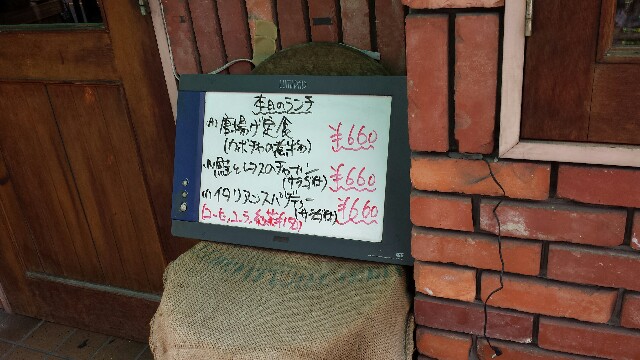 本日のランチ
A) 唐揚げ定食 ¥660
(カボチャの煮物)
鮭とレタスのチャーハン
(サラダ付) ¥660
イタリアンスパゲティー
(サラダ付) ¥660
(コーヒ、コーラ、紅茶付